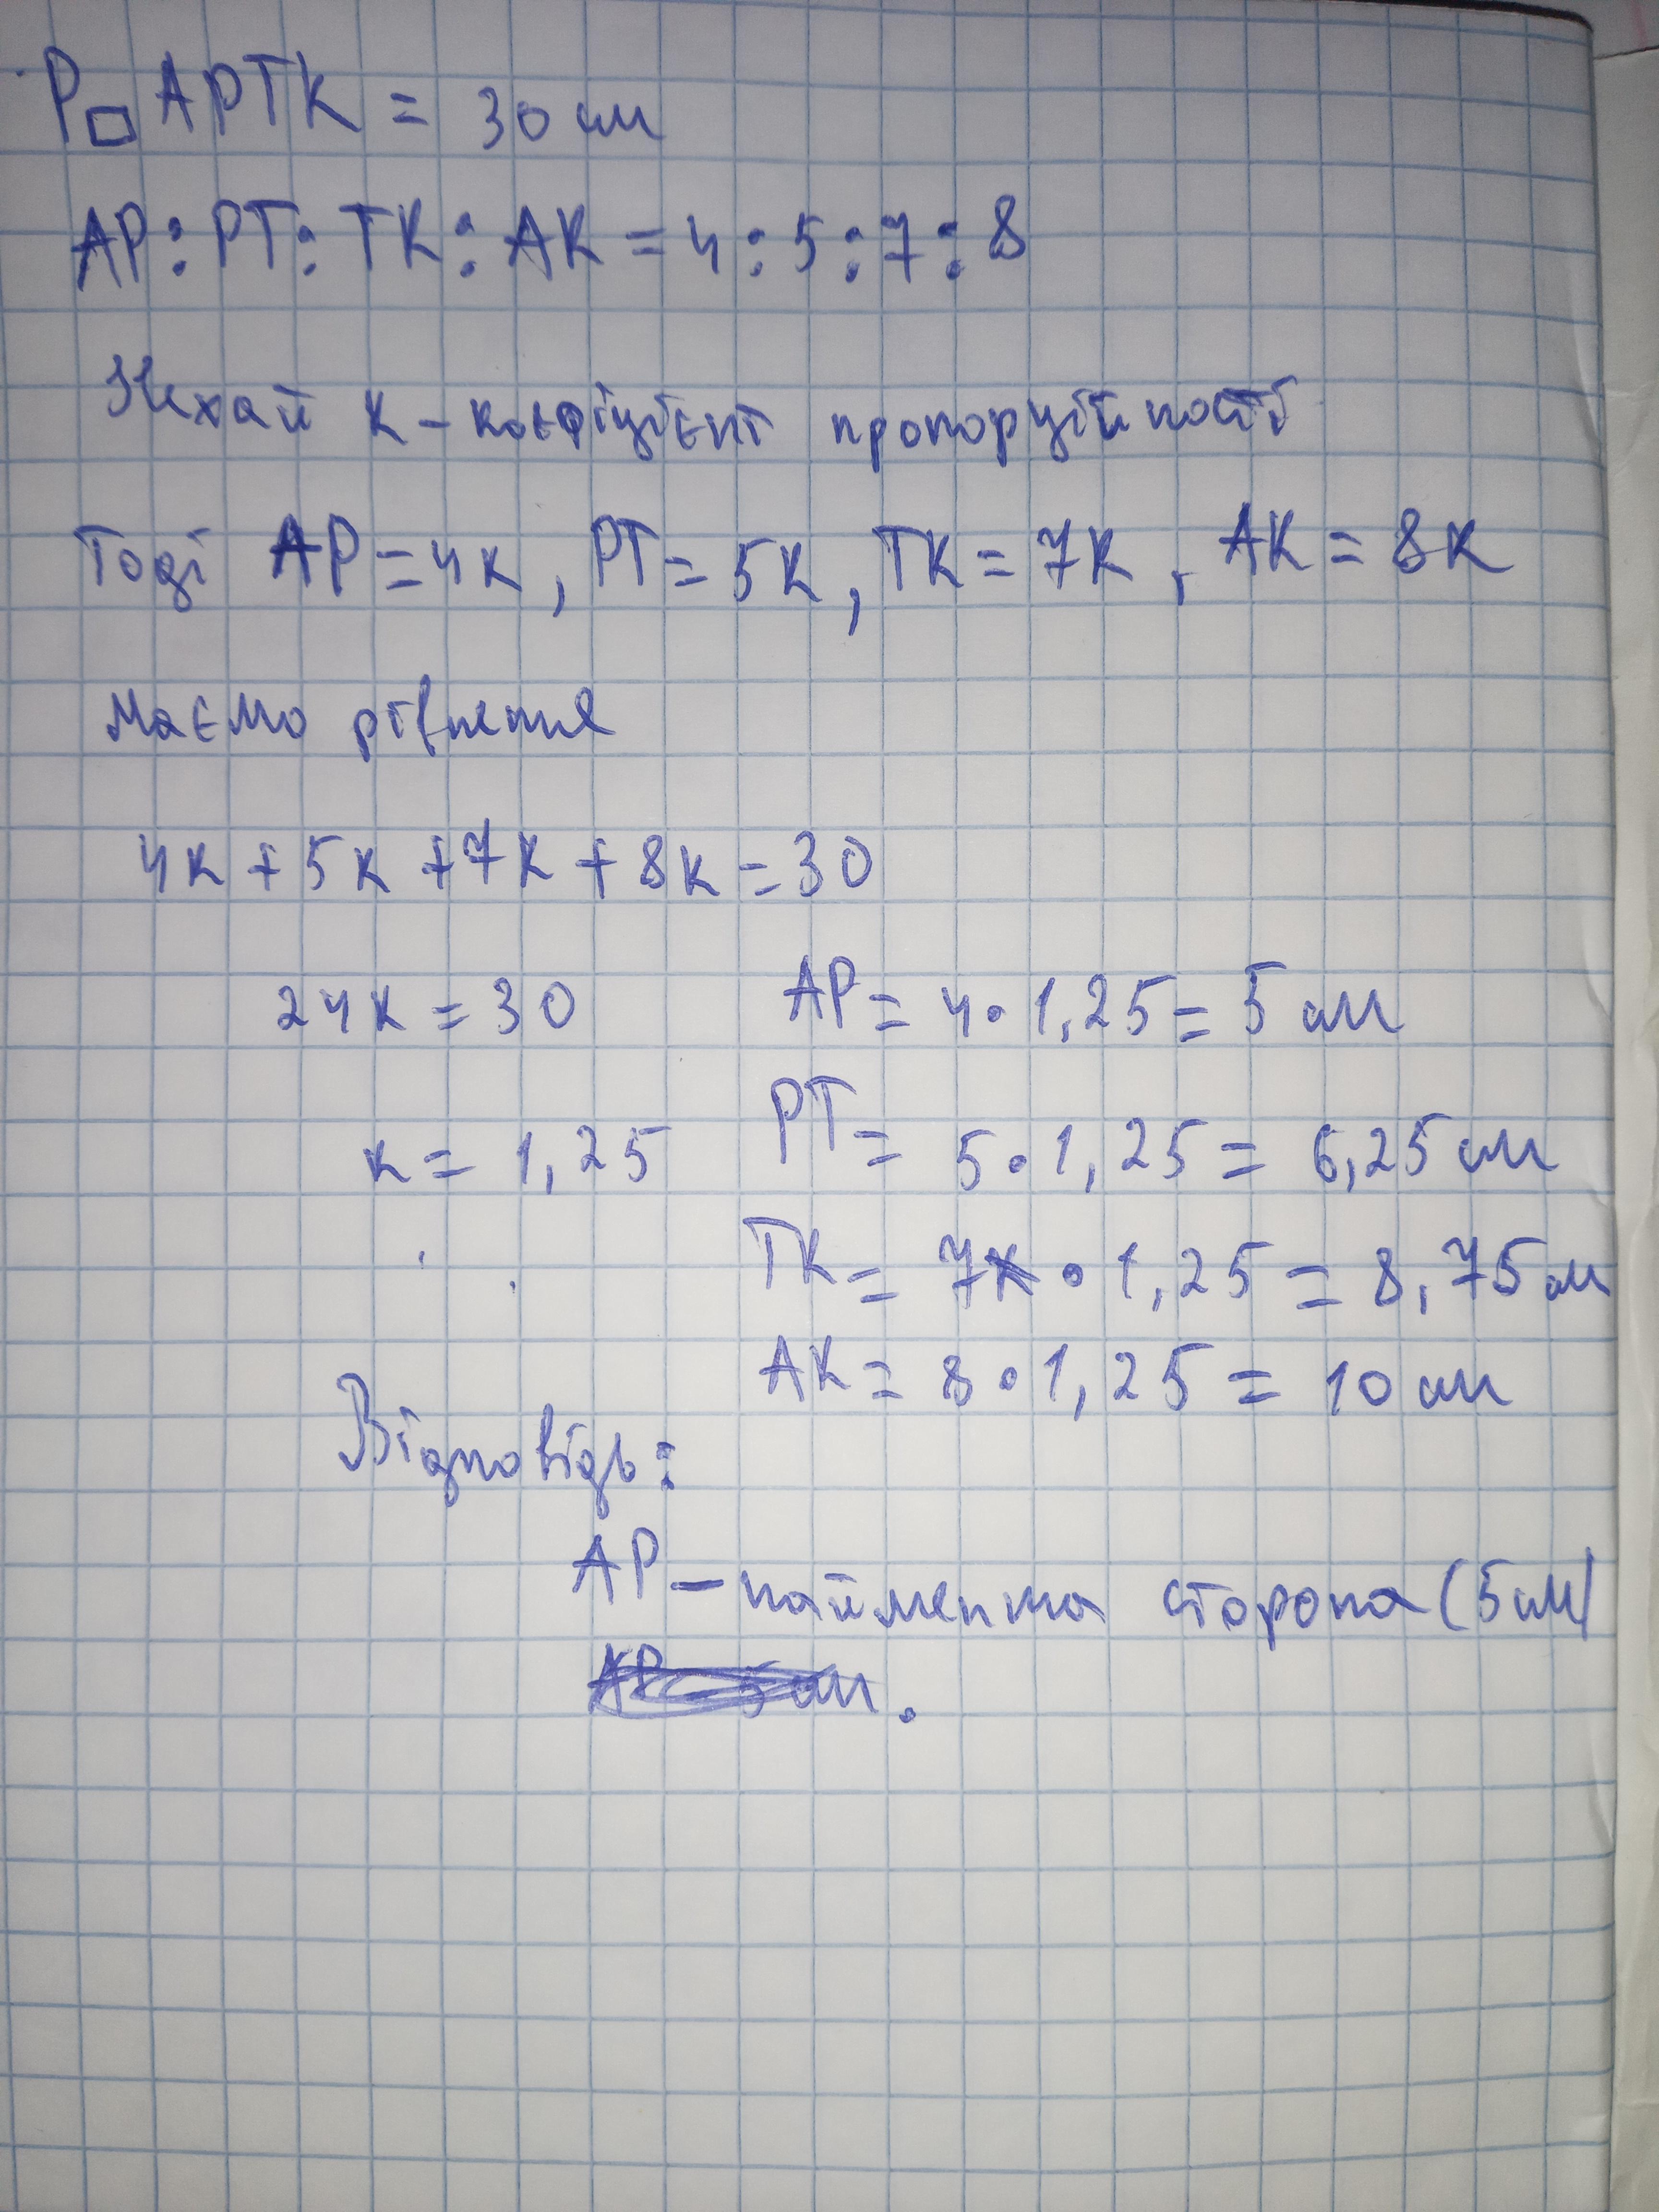 P□ APTK = 30 см
AP : PT : TK : AK = 4 : 5 : 7 : 8
Нехай k – коефіцієнт пропорційності
Тоді AP = 4k, PT = 5k, TK = 7k, AK = 8k
Маємо рівняння
4k + 5k + 7k + 8k = 30
24k = 30
k = 1,25
AP = 4 • 1,25 = 5 см
PT = 5 • 1,25 = 6,25 см
TK = 7 • 1,25 = 8,75 см
AK = 8 • 1,25 = 10 см
Відповідь:
AP – найменша сторона (5 см)